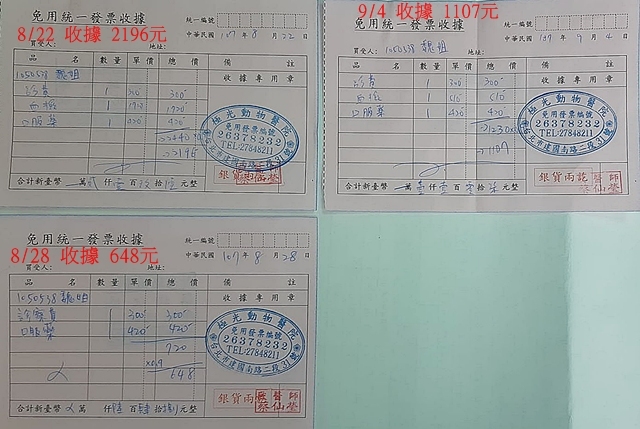 免用統一發票收據
8/22 收據 2196元
統一編號
中華民國 107 年 8 月 22 日
買受人: 地址:
品 名 數量 單價 總價 備 註
1050538 魏姐 收據專用章
診費 1 300 300
1 420 420
口服藥
2196
極光動物醫院
免用發票編號
26378232
TEL:27848211
台北市建國南路二段31號
銀貨兩訖
合計新臺幣 萬 仟 壹 百 拾 元整
9/4 收據 1107元
統一編號
中華民國 107 年 9 月 4 日
買受人: 1050538 魏姐 地址:
品 名 數量 單價 總價 備 註
診費 1 300 300 收據專用章
1 510 510
口服藥 1 420 420
1230
1107
極光動物醫院
免用發票編號
26378232
TEL:27848211
台北市建國南路二段31號
銀貨兩訖
合計新臺幣 萬 壹 仟 壹 百 零 拾 柒 元整
免用統一發票收據
8/28 收據 648元
統一編號
中華民國 107 年 8 月 28 日
買受人: 地址:
品 名 數量 單價 總價 備 註
1050538 魏姐 收據專用章
診察費 1 300 300
口服藥 1 420 420
720
x0.9
648
極光動物醫院
免用發票編號
26378232
TEL:27848211
台北市建國南路二段31號
銀貨兩訖
合計新臺幣 萬 仟 陸 百 肆 拾 捌 元整